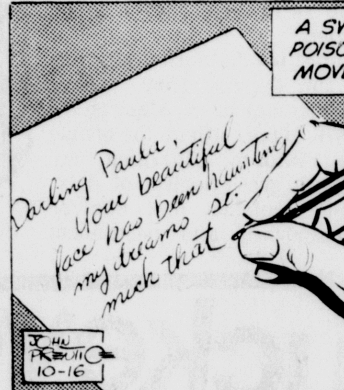 A
POISO
MOVE
Darling Paula,
your beautiful
face has been haunting
my dreams so
much that
JOHN
PRENTICE
10-16